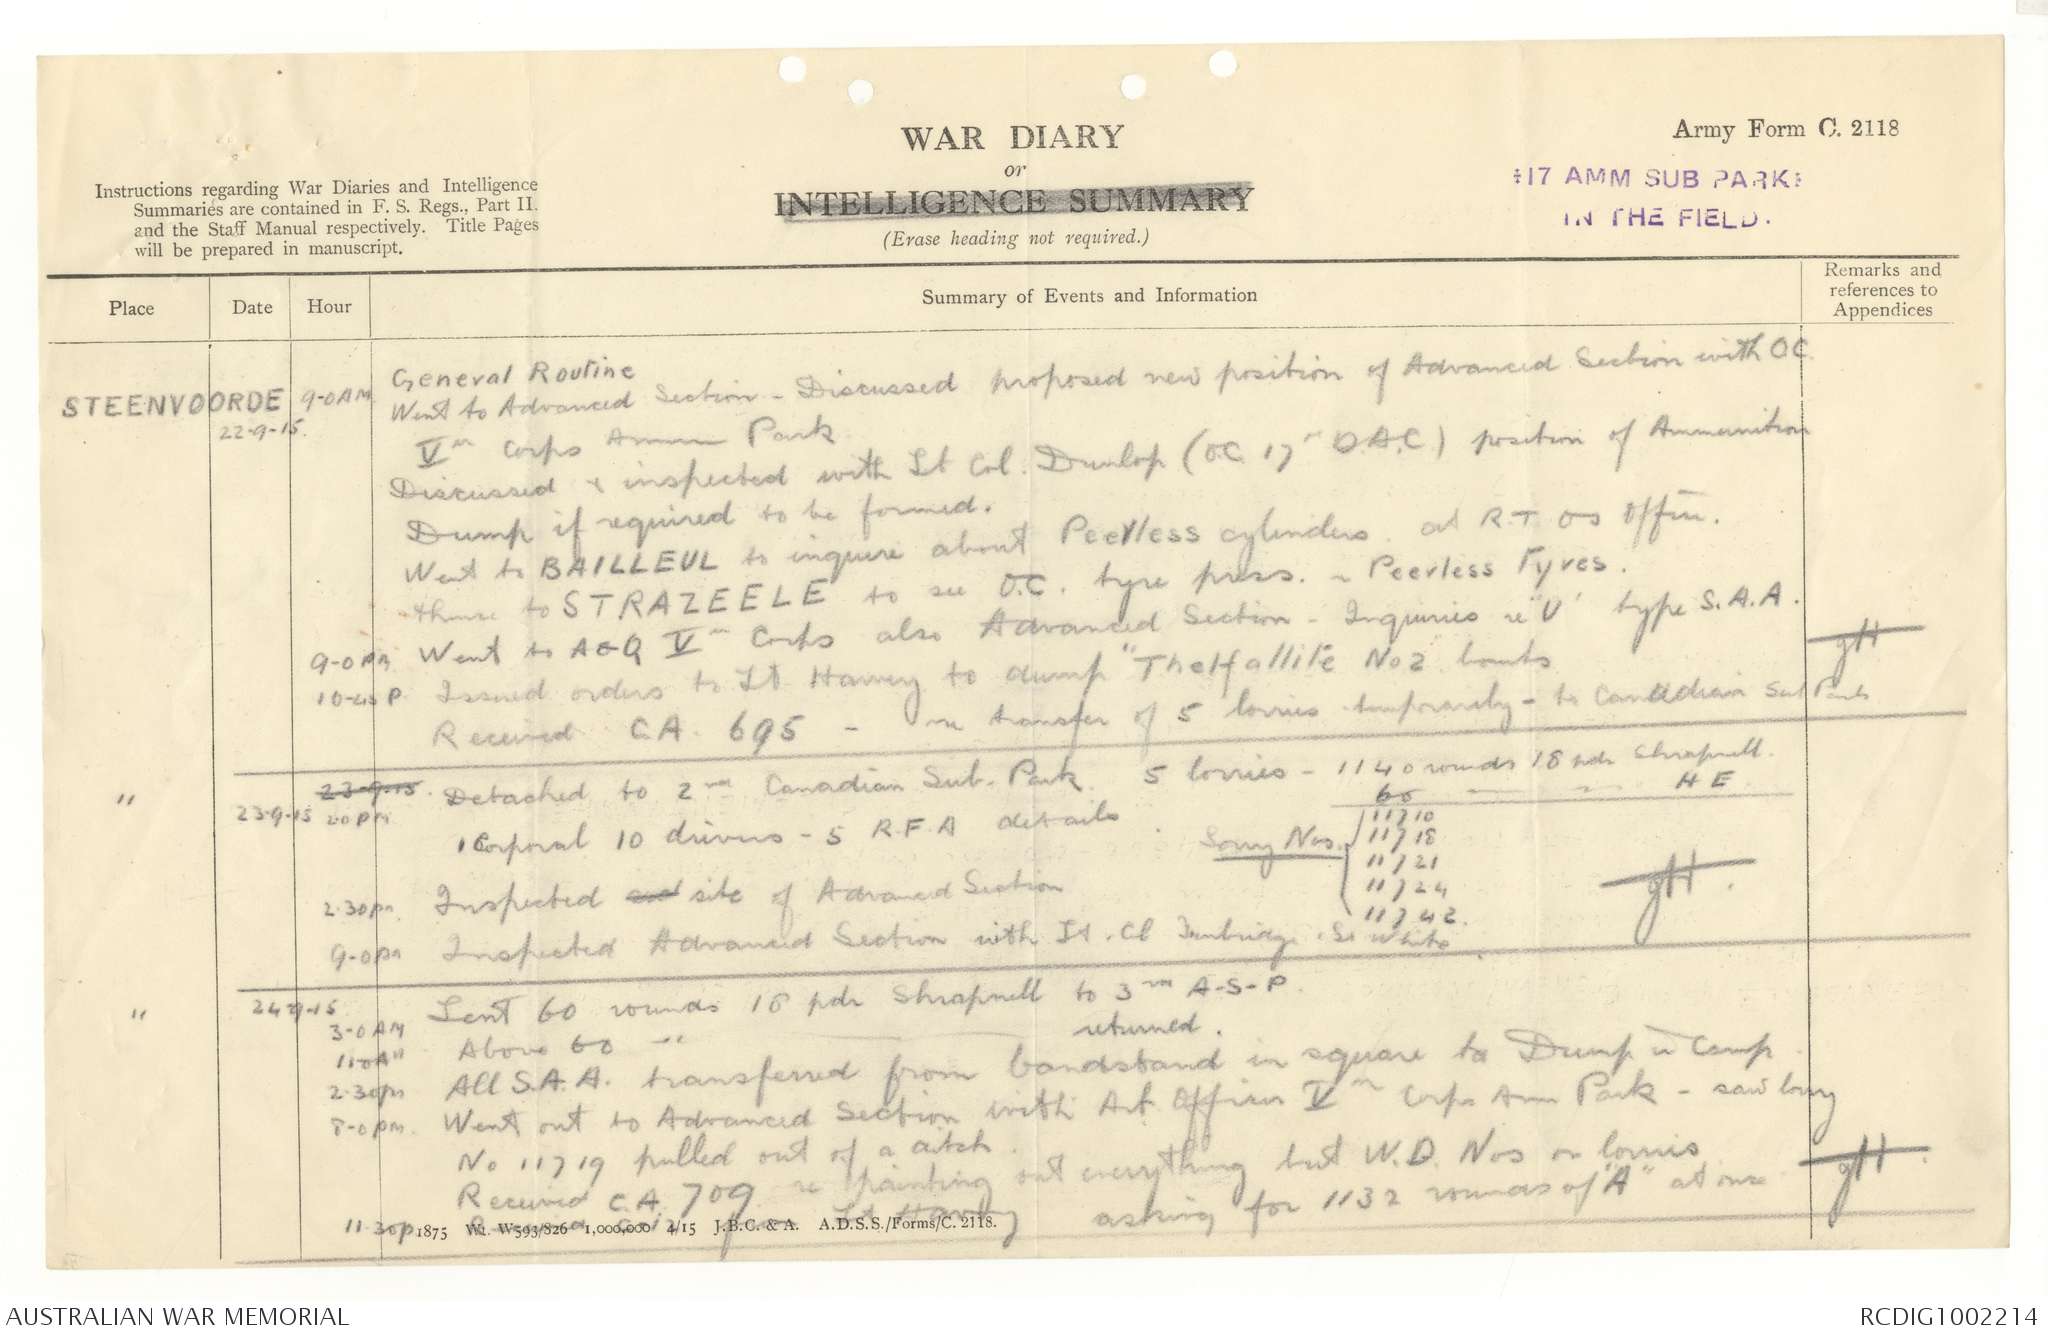 WAR DIARY
or
INTELLIGENCE SUMMARY
(Erase heading not required.)
Army Form C. 2118
17 AMM SUB PARK
IN THE FIELD.
Instructions regarding War Diaries and Intelligence
Summaries are contained in F. S. Regs., Part II.
and the Staff Manual respectively. Title Pages
will be prepared in manuscript.
Place Date Hour Summary of Events and Information Remarks and references to Appendices
General Routine
STEENVOORDE 22-9-15. 9-0 AM Went to Advanced Section - Discussed proposed new position of Advanced Section with O.C.
V Corps Ammn Park
Discussed & inspected with Lt Col. Dunlop (O.C. 17th D.A.C.) position of Ammunition
Dump if required to be formed.
Went to BAILLEUL to inquire about Peerless cylinders at R.T.O's Office.
thence to STRAZEELE to see O.C. tyre press. - Peerless Tyres.
9-0 PM Went to A&Q V Corps also Advanced Section - Inquiries re "U" type S.A.A.
10-45 P Issued orders to Lt Harvey to dump "Thelfallite No 2 bombs
Received C.A. 695 - re transfer of 5 lorries temporarily - to Canadian Sub Park
gH
" 23-9-15 23-9-15. 2.0 PM Detached to 2nd Canadian Sub-Park. 5 lorries - 1140 rounds 18 pdr Shrapnell.
60 — " H E
1 Corporal 10 drivers - 5 R.F.A details. Lorry Nos. 11710
11718
11721
11724
11742.
2.30 pm. Inspected site of Advanced Section
gH.
9-0 pm Inspected Advanced Section with Lt. Cl White.
" 24-9-15 3-0 AM Lent 60 rounds 18 pdr Shrapnell to 3rd A-S-P.
11.0 AM Above 60 " — returned.
2-30 pm All S.A.A. transferred from bandstand in square to Dump in Camp.
8-0 pm. Went out to Advanced Section with Art. Officer V Corps Amm Park - saw lorry
No 11719 pulled out of a ditch.
Received C.A. 709 re painting out everything but W.D. Nos on lorries
11.30 p. Lt Harvey asking for 1132 rounds of "A" at once
gH.
1875 Wt. W593/826 1,000,000 4/15 J.B.C. & A. A.D.S.S./Forms/C. 2118.
AUSTRALIAN WAR MEMORIAL
RCDIG1002214